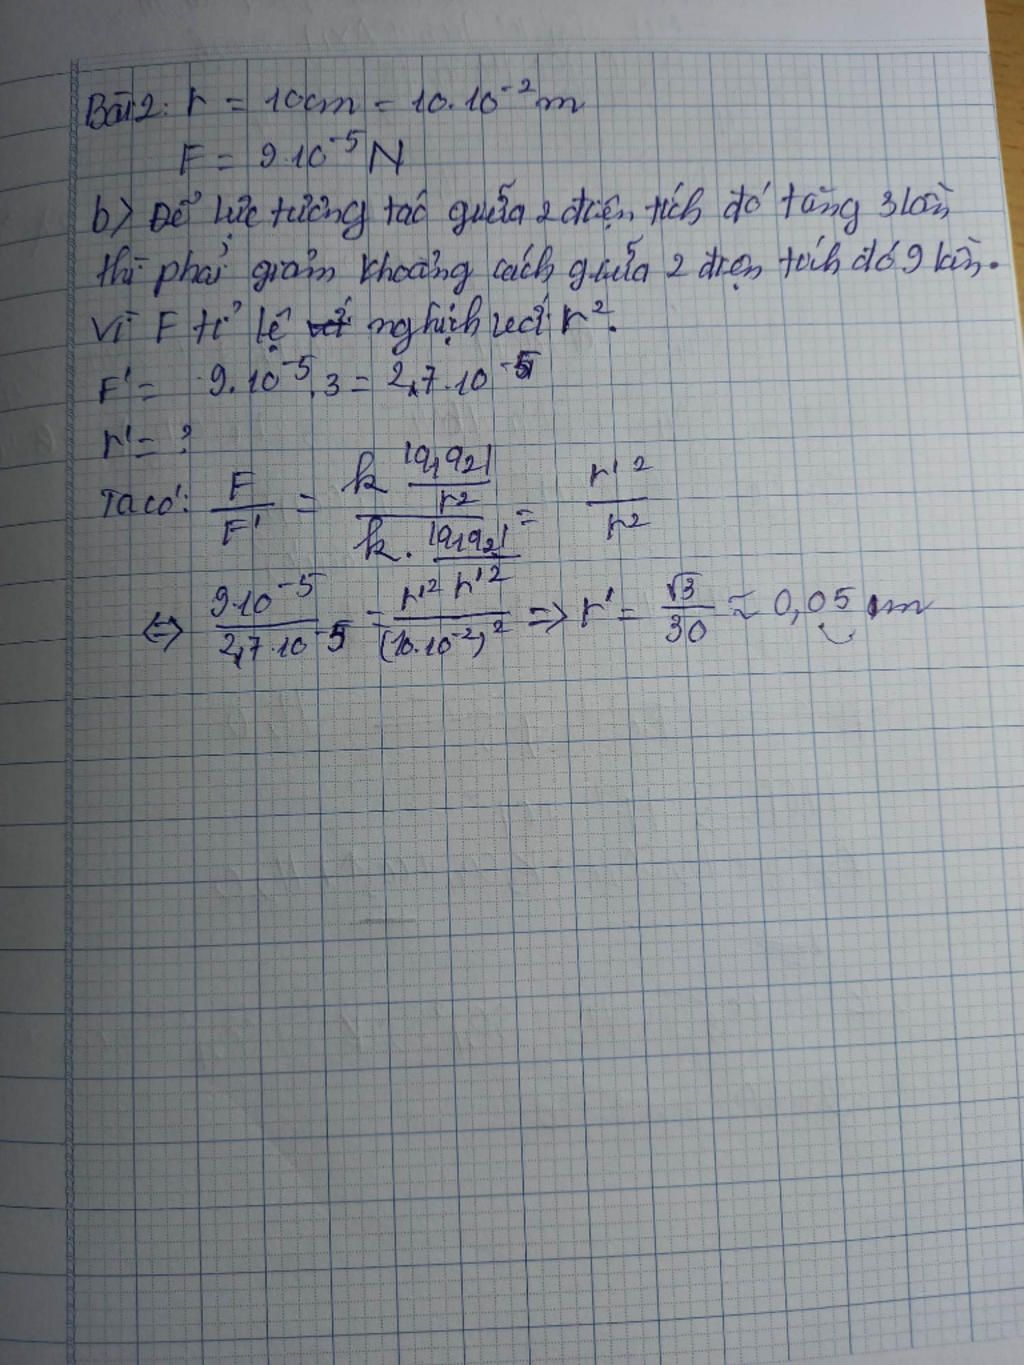 Bài 2: r = 10cm = 10.10⁻² m
F = 9.10⁻⁵ N
b) Để lực tương tác giữa 2 điện tích đó tăng 3 lần
thì phải giảm khoảng cách giữa 2 điện tích đó 9 lần.
Vì F tỉ lệ nghịch với r².
F' = 9.10⁻⁵.3 = 2,7.10⁻⁵
r' = ?
Ta có: F/F' = (k |q₁q₂|/r²)/(k.|q₁q₂|/r'²) = r'²/r²
⇔ 9.10⁻⁵/2,7.10⁻⁵ = r'²/(10.10⁻²)² => r' = √3/30 ≈ 0,05 m